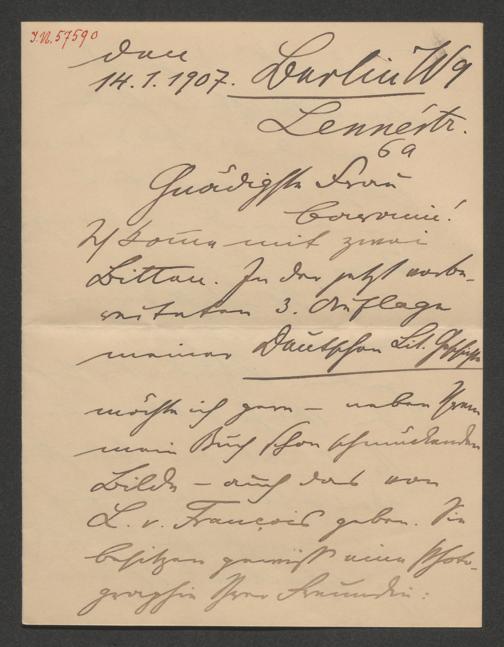 I.N. 57590
den
14.1.1907. Berlin W9
Lennéstr.
6a
Gnädigste Frau
Baronin!
Ich komme mit zwei
Bitten. In der jetzt vorbe-
reiteten 3. Auflage
meiner Deutschen Lit. Geschichte
möchte ich gern – neben Ihrem
mein Buch schon schmückenden
Bilde – auch das von
L. v. François geben. Sie
besitzen gewiß eine Photo-
graphie Ihrer Freundin: